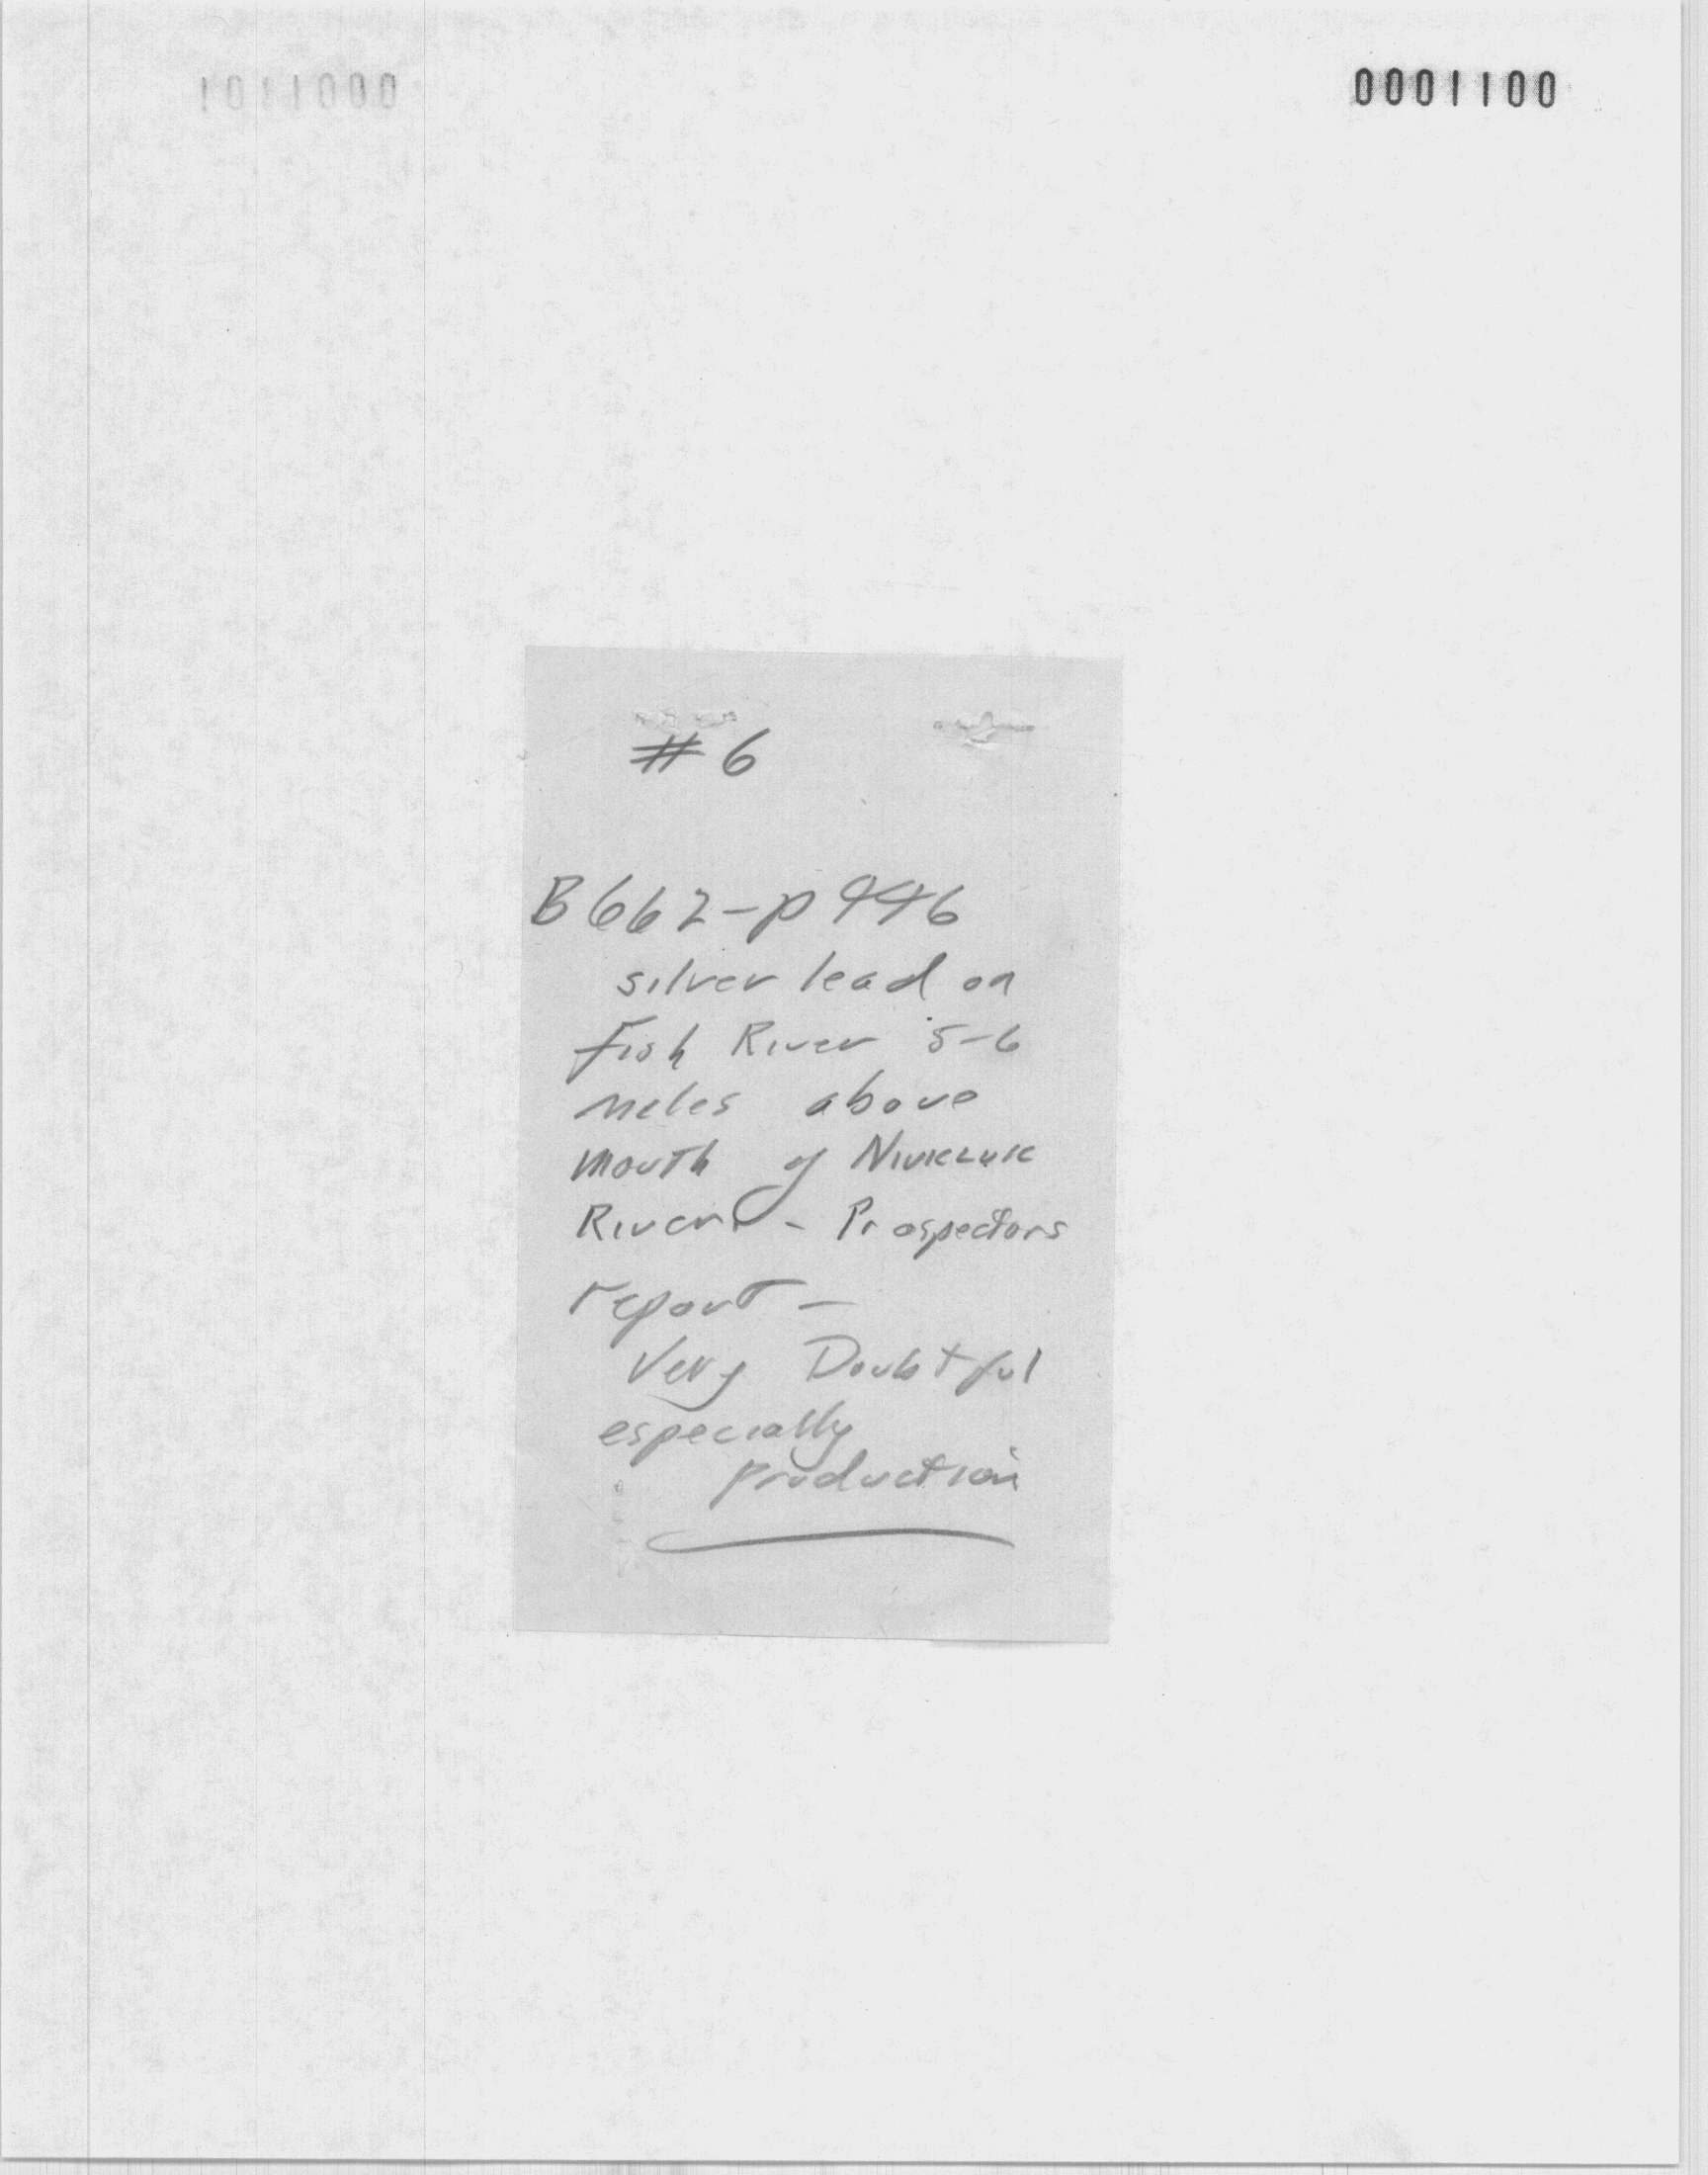 0001100
#6
B662-p446
silver lead on
Fish River 5-6
miles above
mouth of Niukluk
River - Prospectors
report -
Very Doubtful
especially
production